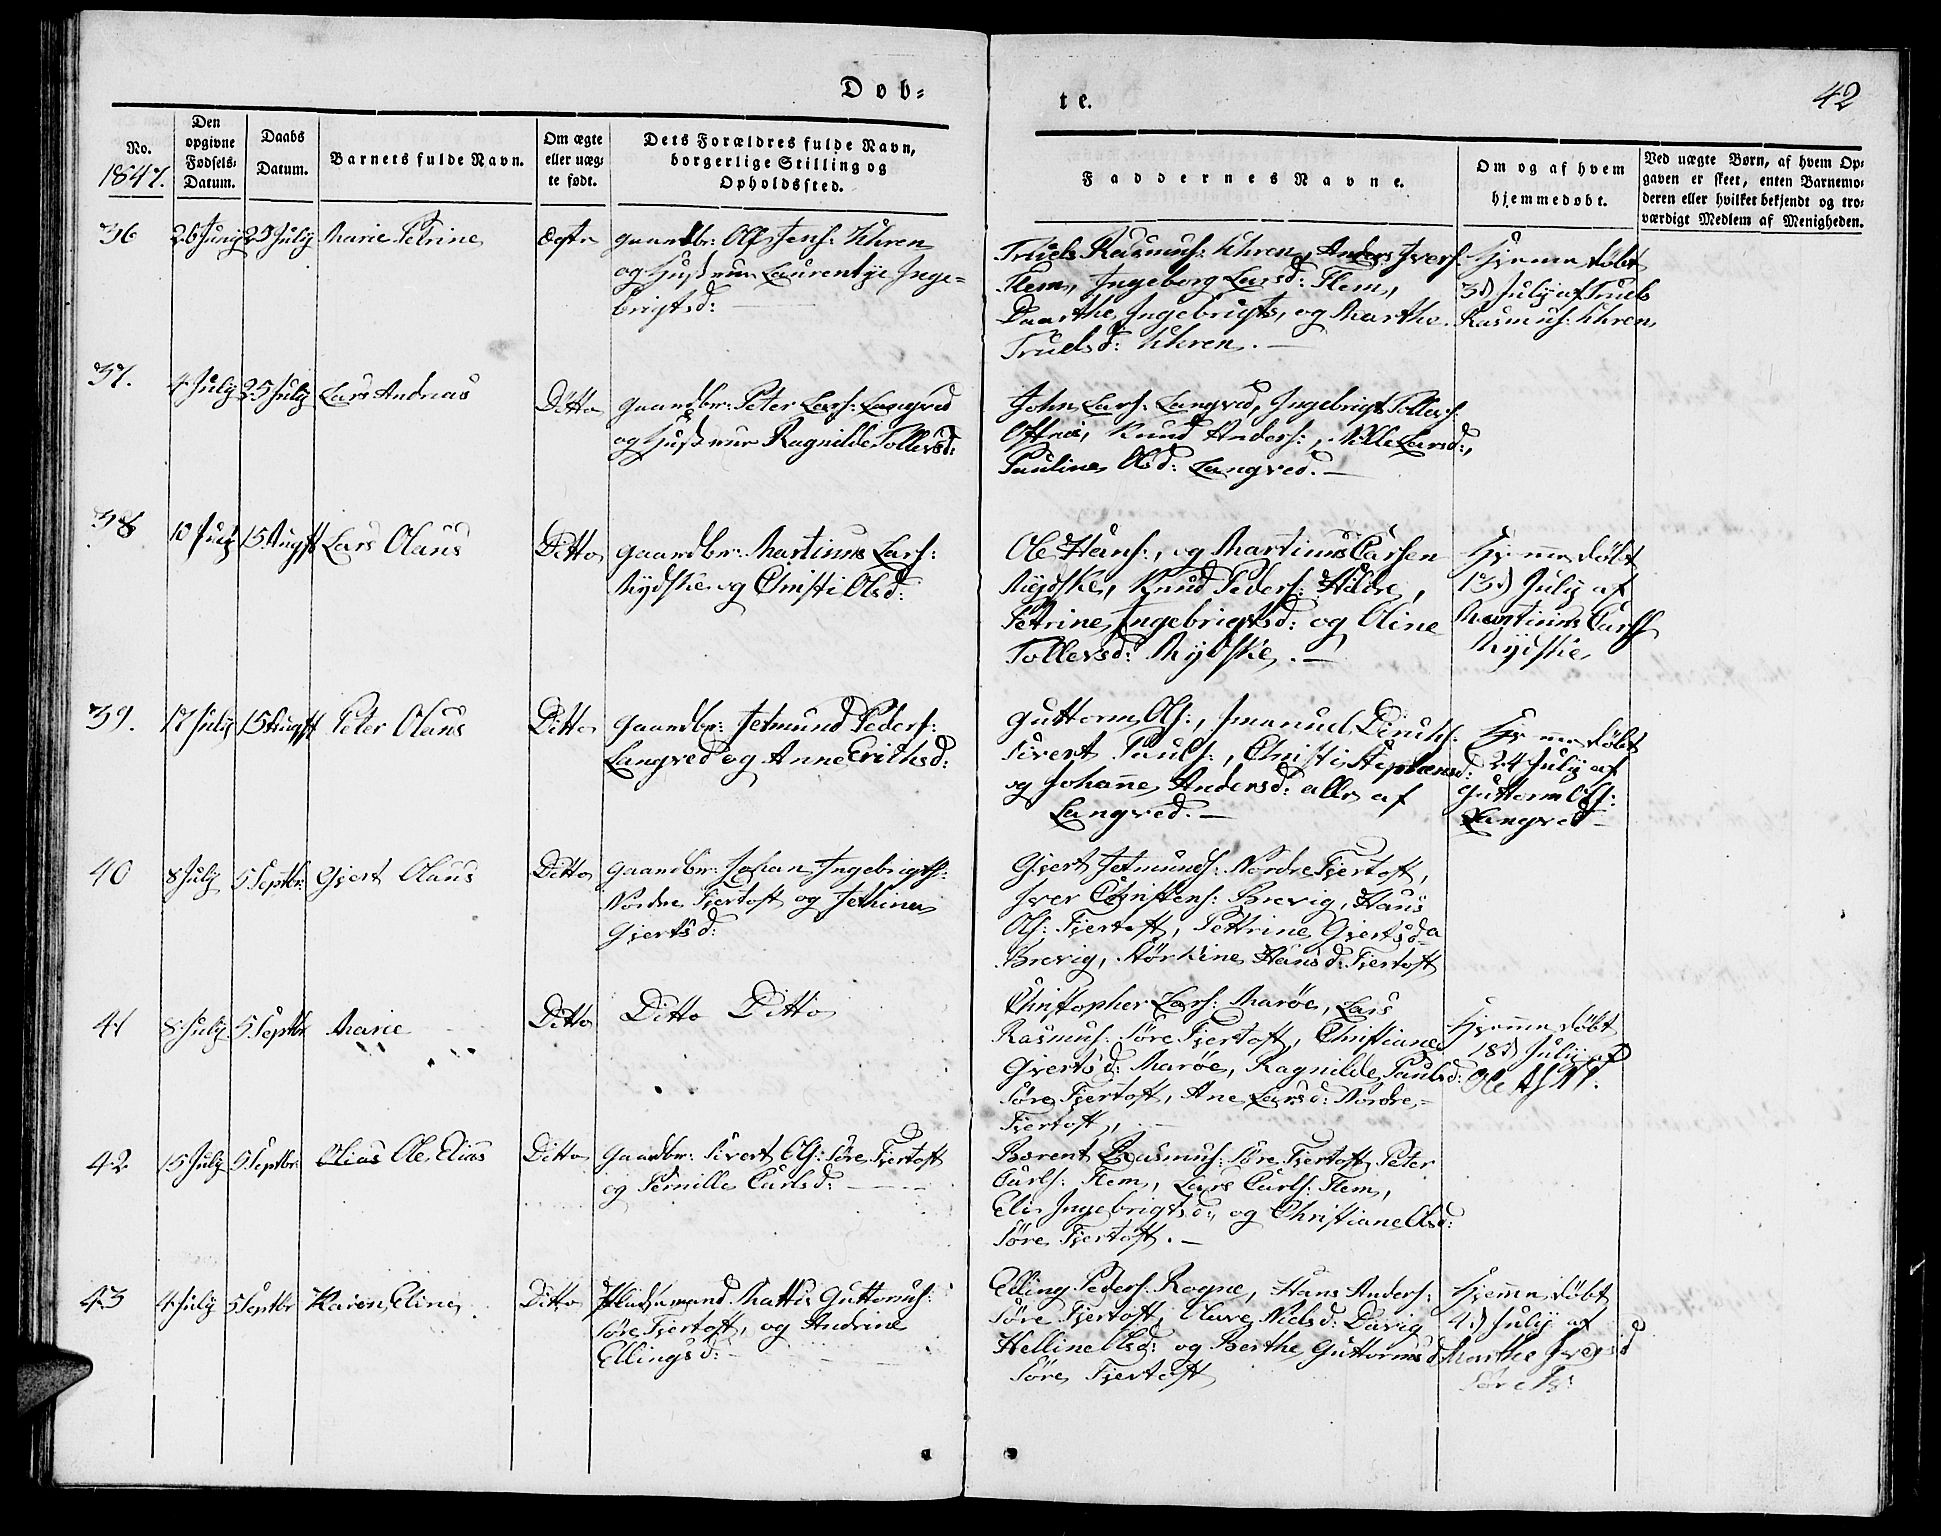 Døb-
te.
42
No.
1847.
Den
opgivne
Fødsels-
Datum.
Daabs
Datum.
Barnets fulde Navn.
Om ægte
eller uæg-
te født.
Dets Forældres fulde Navn,
borgerlige Stilling og
Opholdssted.
Faddernes Navne.
Om og af hvem
hjemmedøbt.
Ved uægte Børn, af hvem Op-
gaven er skeet, enten Barnemo-
deren eller hvilket bekjendt og tro-
værdigt Medlem af Menigheden.
36
26 Juny
25 July
Marie Petrine
Ægte
Gaardbr: Ole Jens: Uhren
og Hustrue Laurentze Inge=
brigtsd:
Truels Rasmus: Uhren, Anders Ivers:
Flem, Ingeborg Larsd: Flem,
Daarthe Ingebrigts, og Marthe
Truelsd: Uhren.
Hjemmedøbt
3d July af Truels
Rasmus: Uhren
37.
4 July
25 July
Lars Andreas
Ditto
Gaardbr: Peter Lars: Langved
og Hustrue Ragnilde Tollevsd:
John Lars: Langved, Ingebrigt Tollevs:
Knud Anders:, Larsd:,
Pauline Olsd: Langved.
38
10 July
15 Augst
Lars Olaus
Ditto
Gaardbr: Martinus Lars:
Mydske og Christi Olsd:
Ole Hans:, og Martinus Carlsen
Mydske, Knud Peders: Hilde,
Petrine Ingebrigtsd: og Oline
Tollevsd: Mydske.
Hjemmedøbt
13d July af
Martinus Carls
Mydske
39.
17 July
15 Augst
Peter Olaus
Ditto
Gaardbr: Jetmund Peders:
Langved og Anne Erichsd:
Guttorm Ols:, Imanuel Dinchs:
Sivert Pauls:, Christi Stephansd:
og Johanne Andersd: alle af
Langved.
Hjemmedøbt
24 July af
Guttorm Ols:
Langved
40
8 July
5 Septbr:
Gjert Olaus
Ditto
Gaardbr: Johan Ingebrigts:
Nordre Fjertoft og Jethine
Gjertsd:
Gjert Jetmunds: Nordre Fjertoft,
Iver Christens: Brevig, Hans
Ols: Fjertoft, Pettrine Gjertsda
Brevig, Nørkine Hansd: Fjertoft
41
8 July
5 Septbr
Marie
Ditto
Ditto Ditto
Christopher Lars: Marøe, Lars
Rasmus: Søre Fjertoft, Christiane
Gjertsd: Marøe, Ragnilde Paulsd:
Søre Fjertoft, Ane Larsd: Nordre
Fjertoft,
Hjemmedøbt
18d July af
Ole
42
15 July
5 Septbr:
Olias Ole Elias
Ditto
Gaardbr: Sivert Ols: Søre Fjertoft
og Pernille Carlsd:
Berent Rasmus: Søre Fjertoft, Peter
Carls: Flem, Lars Carls: Flem,
Eli Ingebrigtsd:, og Christiane Olsd:
Søre Fjertoft.
43
4 July
5 Septbr
Karen Eline
Ditto
Pladsemand Mattis Guttorms:
Søre Fjertoft, og Andrine
Ellingsd:
Elling Peders: Rogne, Hans Anders:
Søre Fjertoft, Nielsd: Davig
Helline Olsd: og Berthe Guttormsd
Søre Fjertoft
Hjemmedøbt
4d July af
Marthe Iversd
Søre F: